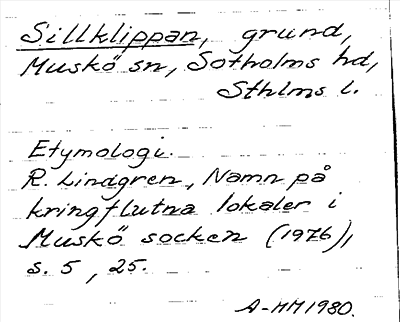 Sillklippan, grund,
Muskö sn, Sotholms hd,
Sthlms l.
Etymologi.
R. Lindgren, Namn på
kringflutna lokaler i
Muskö socken (1976),
s. 5, 25.
A-MM 1980.